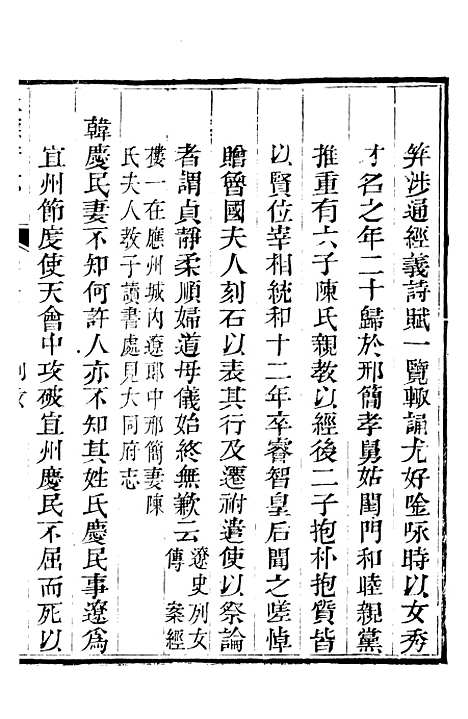 笄涉通經義詩賦一覽輒誦尤好唫咏時以女秀
才名之年二十歸於邢簡孝舅姑閨門和睦親黨
推重有六子陳氏親教以經後二子抱朴抱質皆
以賢位宰相統和十二年卒睿智皇后聞之嗟悼
贈魯國夫人刻石以表其行及遷祔遣使以祭論
者謂貞靜柔順婦道母儀始終無歉云遼史列女傳 案經
樓一在應州城內遼郎中邢簡妻陳
氏夫人教子讀書處見大同府志
韓慶民妻不知何許人亦不知其姓氏慶民事遼為
宜州節度使天會中攻破宜州慶民不屈而死以
列女